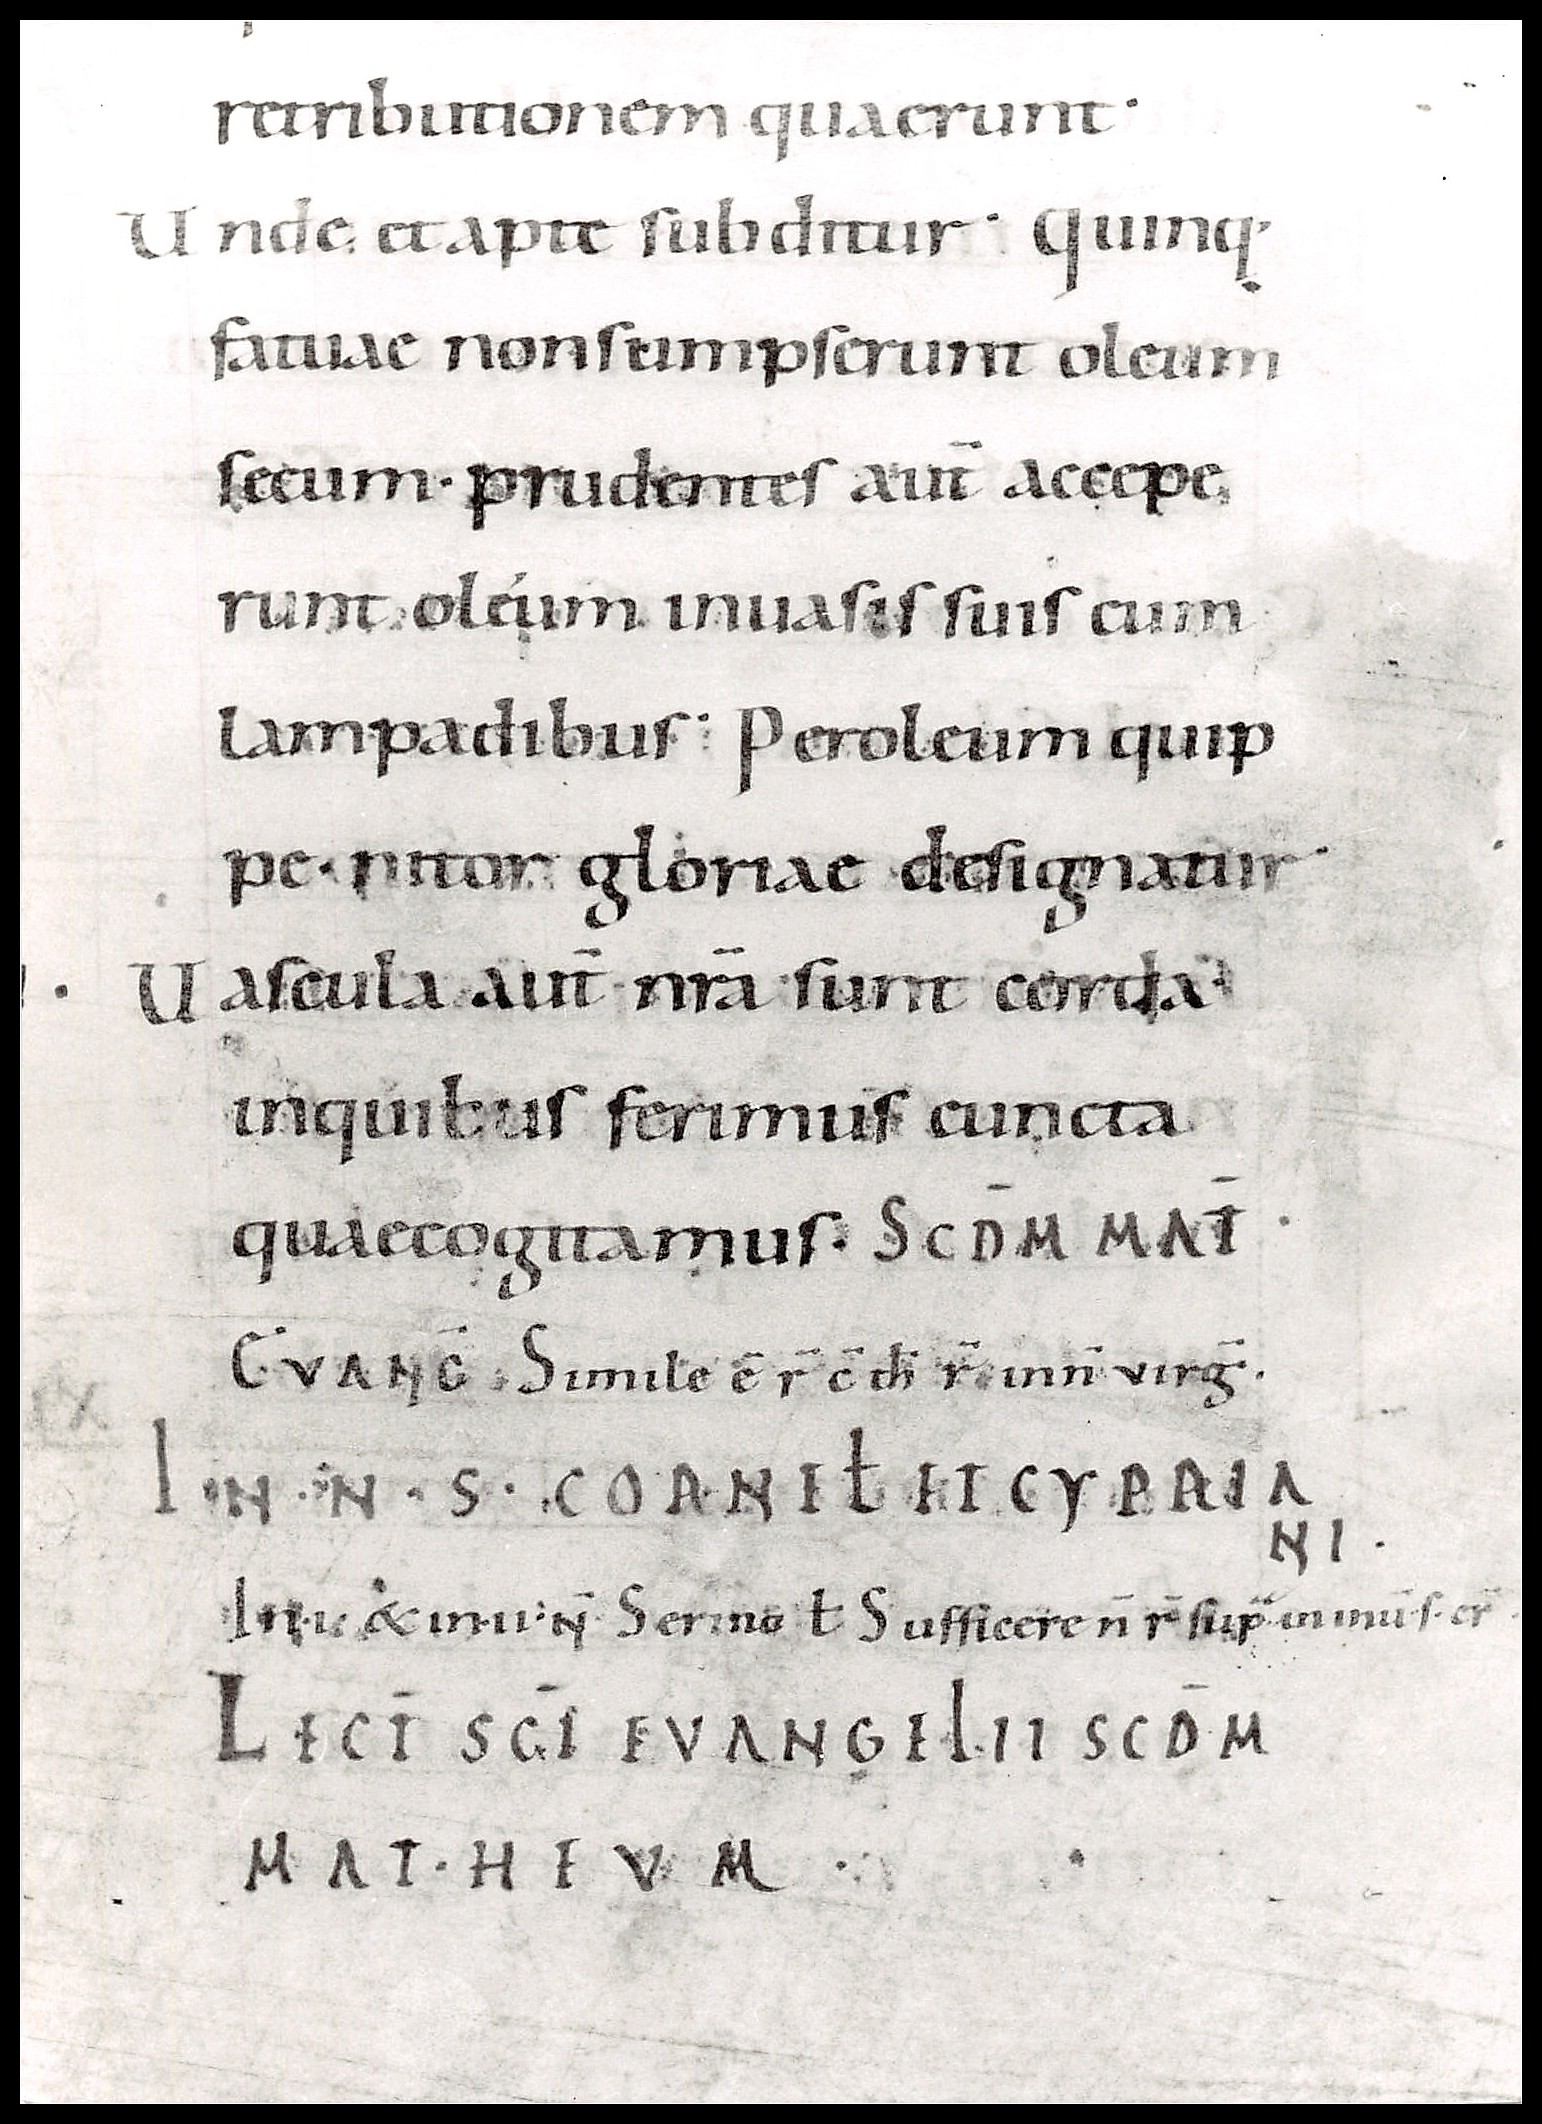 retributionem quaerunt·
Unde et apte subditur· Quinq·
fatuae non sumpserunt oleum
secum· prudentes aut̄ accepe
runt oleum inuasis suis cum
lampadibus· Peroleum quip
pe· nitor gloriae designatur·
Uascula aut̄ nr̄a sunt corda·
inquibus ferimus cuncta
quaecogitamus· SCD̄M MAT̄·
EVANḠ· Simile ē r̄ virḡ·
IN· N· S· CORNEƚ ET CYPRIA
NI·
Sermo ƚ Sufficere n̄ r̄
LECT̄ SC̄I EVANGELII SCD̄M
MAT·HEVM·